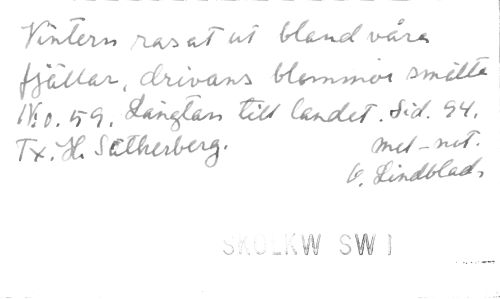 Vintern rasat ut bland våra
fjällar, drivans blommor smälta
No. 59. Längtan till landet. Sid. 94.
Tx. H. Sätherberg. met-not.
O. Lindblad.
SKOLKW SW